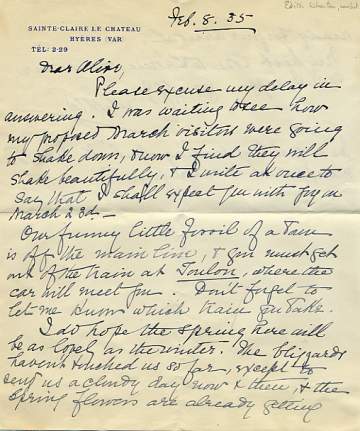 Edith Wharton
SAINTE-CLAIRE LE CHATEAU
HYERES (VAR)
TÉL: 2-29
Feb. 8. 35
Dear Alice,
Please excuse my delay in
answering. I was waiting to see how
my proposed March visitors were going
to shake down, & now I find they will
shake beautifully, & I write at once to
say that I shall expect you with joy on
March 23d—
Our funny little fossil of a town
is off the main line, & you must get
out of the train at Toulon, where the
car will meet you. Don't forget to
let me know which train you take.
I do hope the spring here will
be as lovely as the winter. The blizzards
haven't touched us so far, except to
send us a cloudy day now & then, & the
spring flowers are already getting